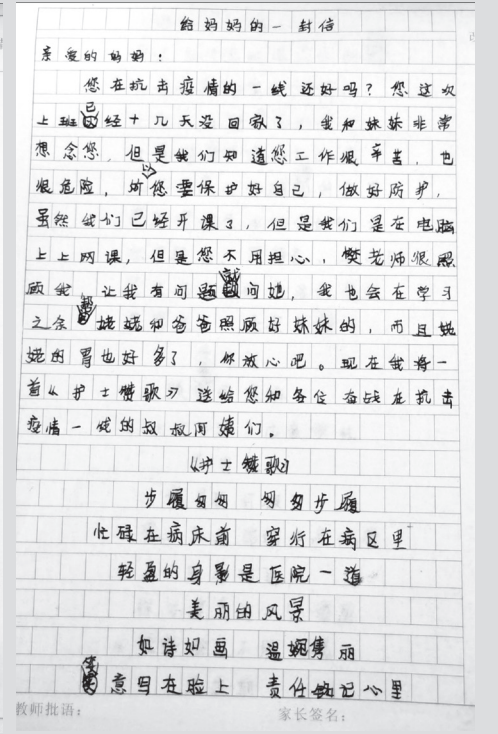 给妈妈的一封信
亲爱的妈妈：
您在抗击疫情的一线还好吗？您这次
上班已经十几天没回家了，我和妹妹非常
想念您，但是我们知道您工作很辛苦，也
很危险，所以您要保护好自己，做好防护，
虽然我们已经开课了，但是我们是在电脑
上上网课，但是您不用担心，樊老师很照
顾我，让我有问题就问她，我也会在学习
之余帮姥姥和爸爸照顾好妹妹的，而且姥
姥的胃也好多了，你放心吧。现在我将一
首《护士赞歌》送给您和各位奋战在抗击
疫情一线的叔叔阿姨们。
《护士赞歌》
步履匆匆 匆匆步履
忙碌在病床前 穿行在病区里
轻盈的身影是医院一道
美丽的风景
如诗如画 温婉隽丽
笑意写在脸上 责任铭记心里
教师批语： 家长签名：